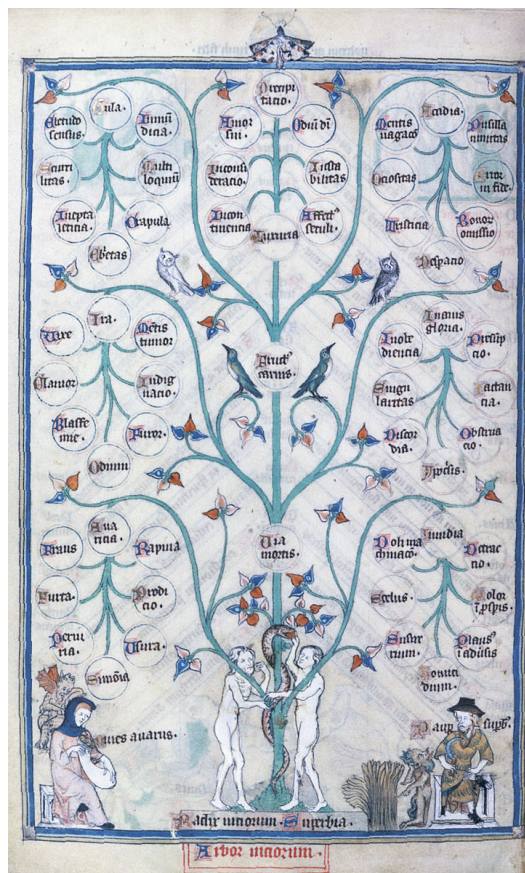 Precipi
tacio.
Amor
sui.
Odiū dī
Inconsi
deracio.
Insta
bilitas
Incon
tinencia
Affectꝰ
seculi.
Luxuria
Gula.
Inmū
dicia.
Scurri
litas.
Multi
loquiū
Inepta
leticia.
Crapula.
Ebetas
Accidia.
Mentis
uagacō
Pusilla
nimitas
Ociositas
Error
in fide.
Tristicia
Bonoꝝ
omissio
Despacio
Ira.
Rixe
Mētis
tumor
Clamor
Indig
nacio.
Blasfe
mie.
Furor.
Odium
Fructꝰ
carnis.
Inanis
gloria.
Inobe
diencia
Presūp
cio.
Singu
laritas
Jactan
cia.
Discor
dia.
Obstina
cio.
Ypoc̄sis.
Aua
ricia.
Fraus
Rapina
Furta.
Prodi
cio.
Periu
ria.
Usura.
Simōia
Uia
mortis.
Inuidia
Detrac
cio.
Scelus.
Dolor
Susur
rium.
Diues auarus.
Paup supbꝰ.
Radix uiciorum. Superbia.
Arbor uiciorum.